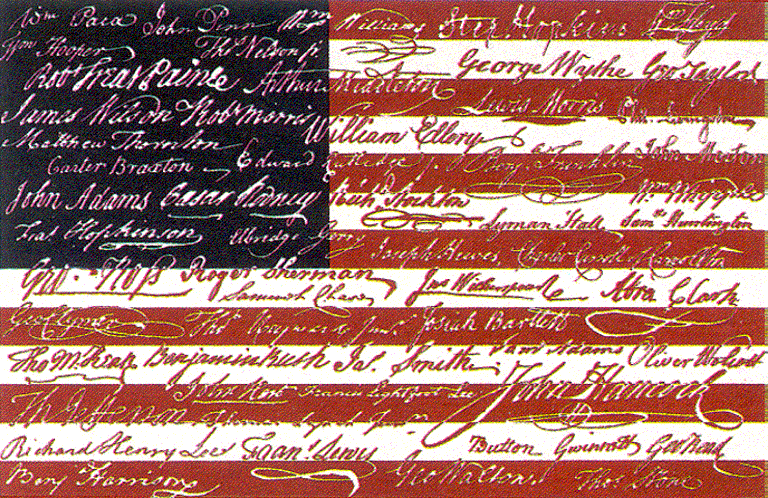 Wm Paca John Penn Wm Williams Step Hopkins Wm Floyd
Wm Hooper Thos Nelson jr George Wythe Geo Taylor
Robt Treat Paine Arthur Middleton
James Wilson Robt Morris Lewis Morris Phil. Livingston
Matthew Thornton William Ellery
Carter Braxton Edward Rutledge Benj. Franklin John Morton
John Adams Caesar Rodney Rich Stockton Wm Whipple
Fras Hopkinson Elbridge Gerry Lyman Hall Saml Huntington
Joseph Hewes Charles Carroll of Carrollton
Geo. Ross Roger Sherman Jno Witherspoon Abra Clark
Samuel Chase
Geo Clymer Thos Heyward Junr. Josiah Bartlett
Thos M:Kean Benjamin Rush Jas. Smith Saml Adams Oliver Wolcott
John Hart Francis Lightfoot Lee John Hancock
Th Jefferson Thomas Lynch Junr
Richard Henry Lee Frans. Lewis Button Gwinnett Geo Read
Benj Harrison Geo Walton Thos Stone